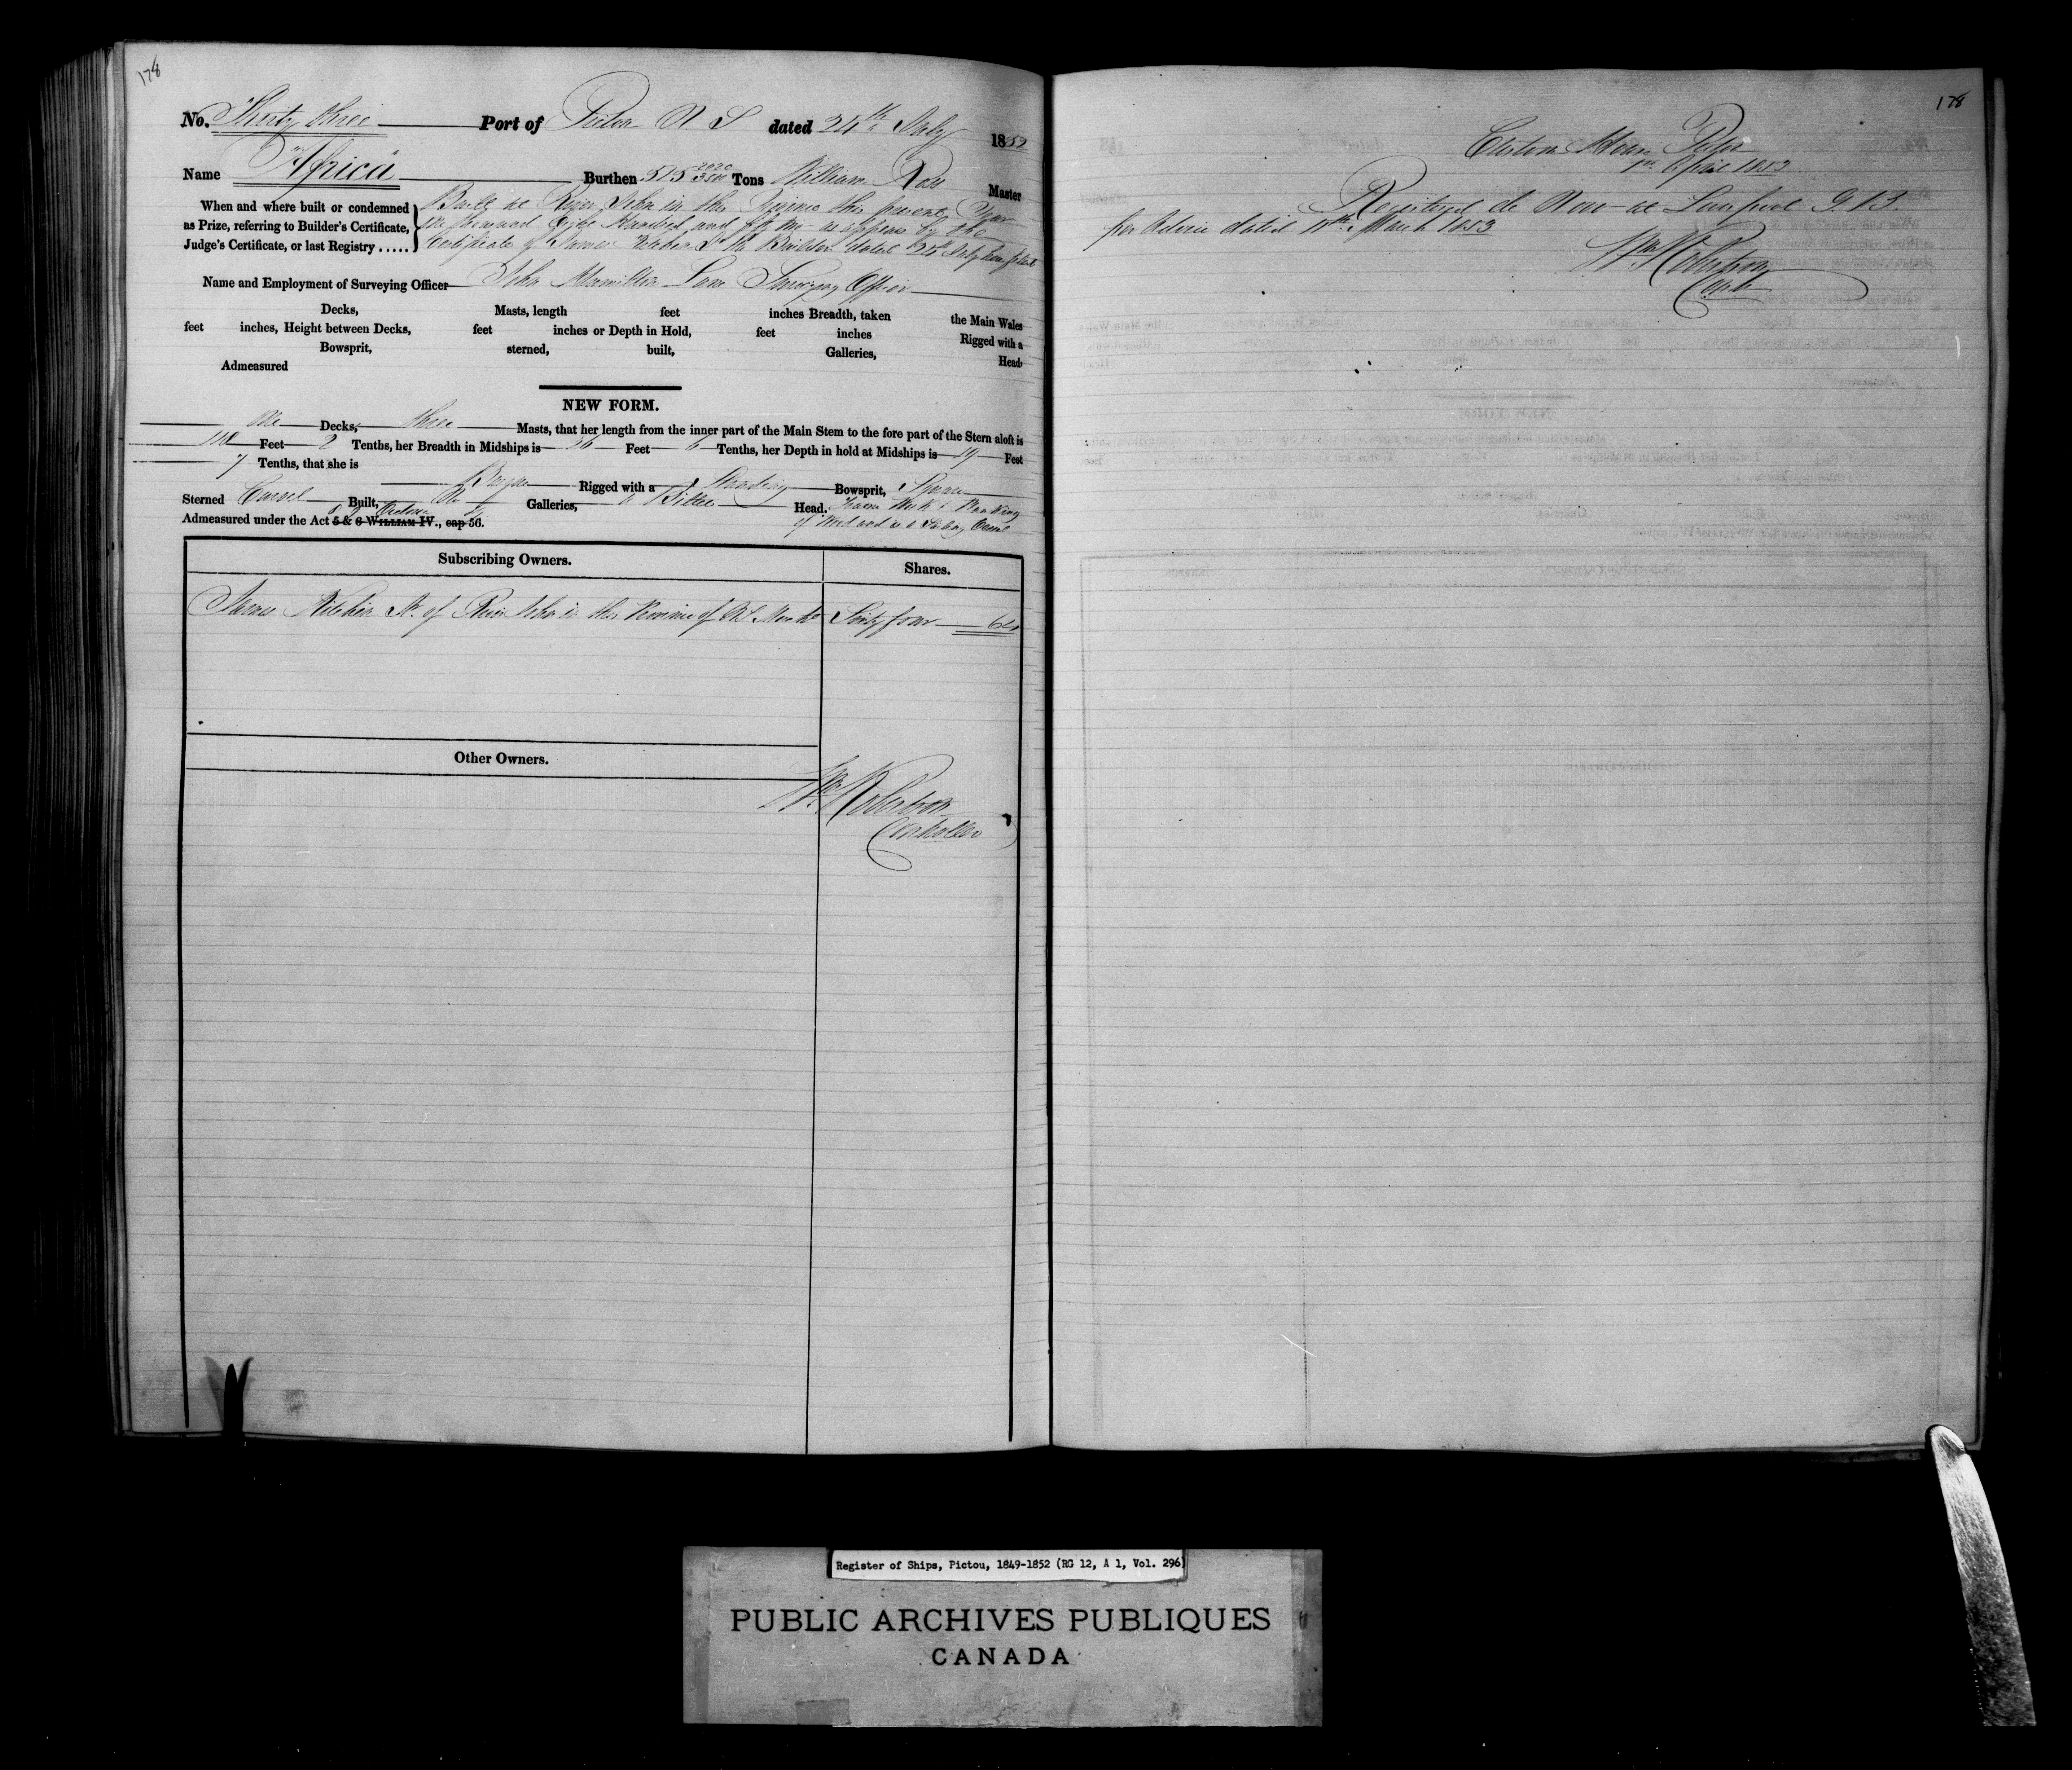 178
No. Thirty three Port of Pictou N. S dated 24th July 1852
Name "Africa" Burthen 515 2020/3500 Tons William Ross Master
When and where built or condemned as Prize, referring to Builder's Certificate, Judge's Certificate, or last Registry.....
Built at River John in this Province this present Year
One thousand Eight Hundred and fifty two as appears by the
Certificate of James Kitchin Sr the Builder dated 24th July
Name and Employment of Surveying Officer John Hamilton Lane Surveying Officer
Decks, Masts, length feet inches Breadth, taken the Main Wales
feet inches, Height between Decks, feet inches or Depth in Hold, feet inches Rigged with a
Bowsprit, sterned, built, Galleries, Head
Admeasured
NEW FORM.
One Decks, three Masts, that her length from the inner part of the Main Stem to the fore part of the Stern aloft is
118 Feet 2 Tenths, her Breadth in Midships is 26 Feet 6 Tenths, her Depth in hold at Midships is 19 Feet
7 Tenths, that she is
Barque Rigged with a Standing Bowsprit, Square
Sterned Carvel Built, No Galleries, a Billet Head. Frame Work & Planking
of Wood and is a Sailing Vessel
Admeasured under the Act 5 & 6 WILLIAM IV., cap 56. Victoria
Subscribing Owners. Shares.
James Kitchin Sr. of River John in the Province of N. S. Sixty four 64
Other Owners.
Wm Robertson
Controller
178
Custom House Pictou
1st April 1853
Registered de Novo at Liverpool G. B.
per Advice dated 11th March 1853
Wm Robertson
Cont
Register of Ships, Pictou, 1849-1852 (RG 12, A 1, Vol. 296)
PUBLIC ARCHIVES PUBLIQUES
CANADA